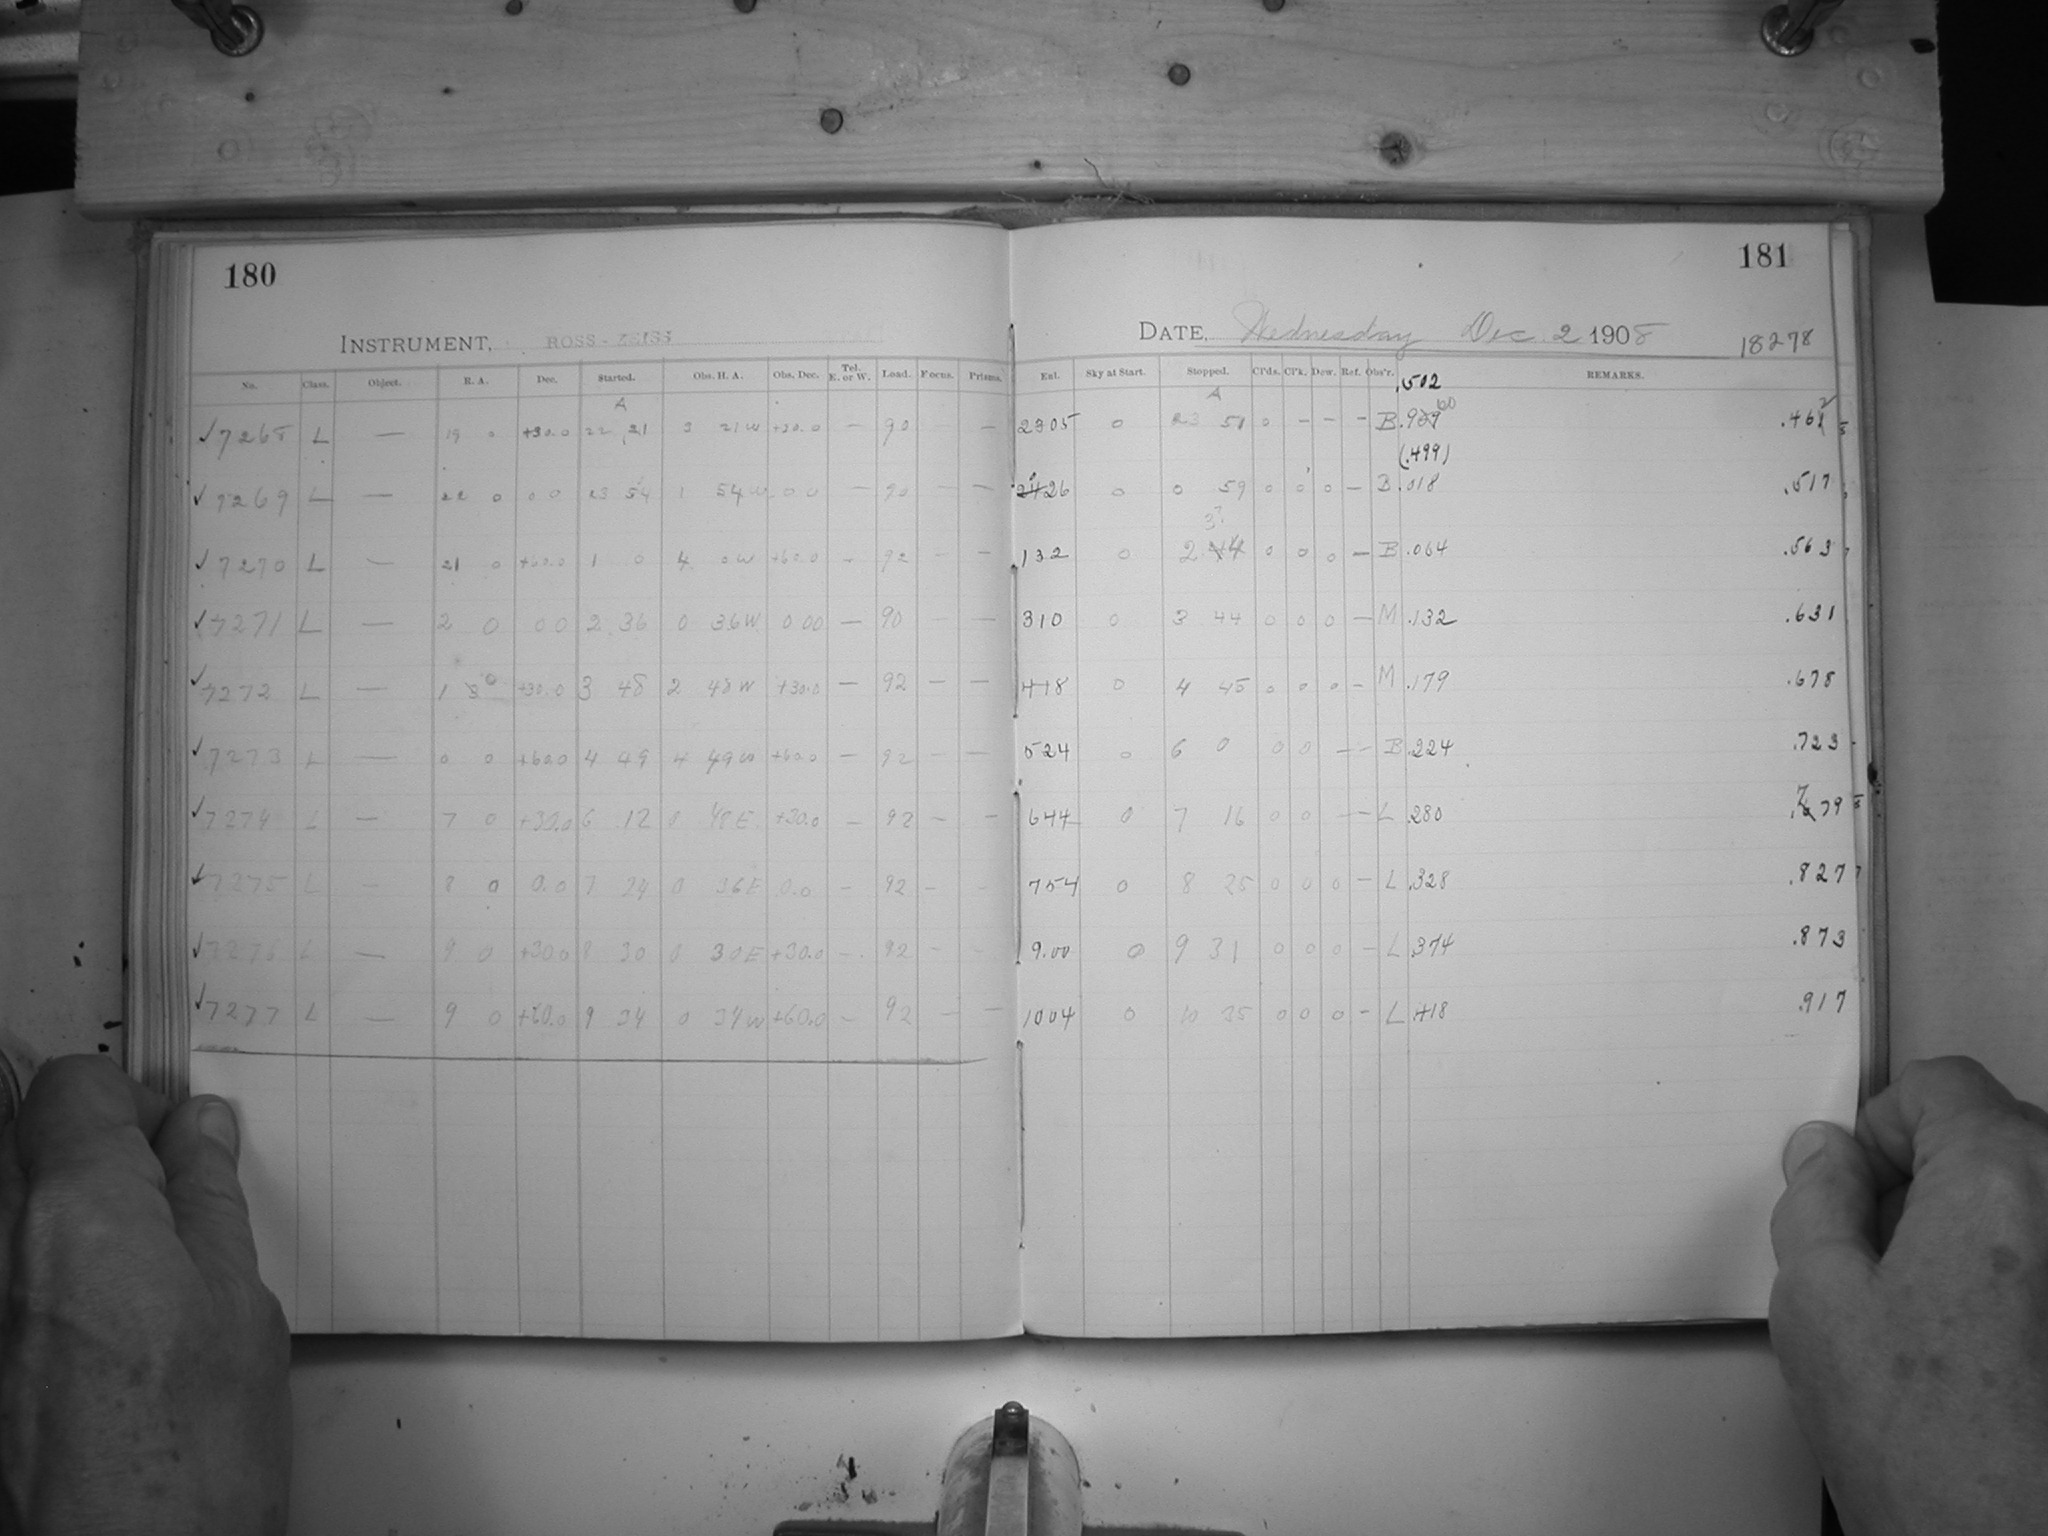 180
INSTRUMENT, ROSS-ZEISS
No. Class. Object. R. A. Dec. Started. Obs. H. A. Obs. Dec. Tel. E. or W. Load. Focus. Prisms.
A
✓ 7268 L — 19 0 +30.0 22 21 3 21W +30.0 — 90 — —
✓ 7269 L — 22 0 0 0 23 54 1 54W 0 0 — 90 — —
✓ 7270 L — 21 0 +60.0 1 0 4 0W +60.0 — 92 — —
✓ 7271 L — 2 0 0 0 2 36 0 36W 0 00 — 90 — —
✓ 7272 L — 1 0 +30.0 3 48 2 48W +30.0 — 92 — —
✓ 7273 L — 0 0 +60.0 4 49 4 49W +60.0 — 92 — —
✓ 7274 L — 7 0 +30.0 6 12 0 48E +30.0 — 92 — —
✓ 7275 L — 8 0 0.0 7 24 0 36E 0.0 — 92 —
✓ 7276 L — 9 0 +30.0 8 30 0 30E +30.0 — 92 —
✓ 7277 L — 9 0 +60.0 9 34 0 34W +60.0 — 92 — —
181
DATE, Wednesday Dec. 2 1908 18278
Ent. Sky at Start. Stopped. Cl'ds. Cl'k. Dew. Ref. Obs'r. REMARKS.
.502
A
2305 0 23 51 0 — — — B .9 60 .462
(.499)
26 0 0 59 0 0 0 — B .018 .517
132 0 2 0 0 0 — B .064 .563
310 0 3 44 0 0 0 — M .132 .631
418 0 4 45 0 0 0 — M .179 .678
524 0 6 0 0 0 — — B .224 .723
644 0 7 16 0 0 — — L .280 .779
754 0 8 25 0 0 0 — L .328 .827
9.00 0 9 31 0 0 0 — L .374 .873
1004 0 10 35 0 0 0 — L .418 .917